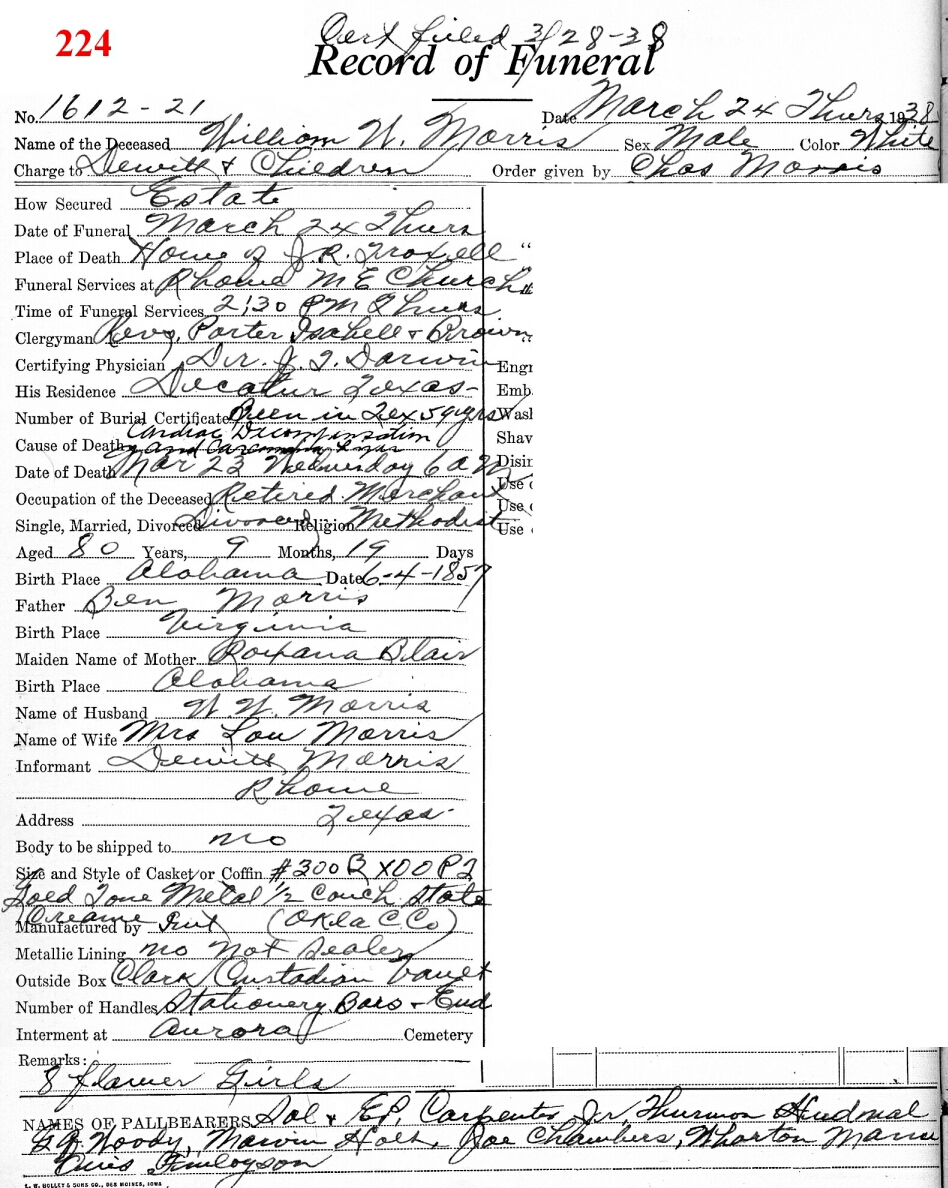 224
Cert filed 3/28-38
Record of Funeral
No. 1612-21 Date March 24 Thurs 1938
Name of the Deceased William W. Morris Sex Male Color White
Charge to Dewitt & Children Order given by Chas Morris
How Secured Estate
Date of Funeral March 24 Thurs
Place of Death Home of J.R. Troxell "
Funeral Services at Rhome M E Church
Time of Funeral Services 2:30 PM Thurs
Clergyman Revs. Porter Isabell & Brown
Certifying Physician Dr. J. T. Darwin Engr
His Residence Decatur Texas- Emb
Number of Burial Certificate Been in Tex 59 yrs Wash
Cause of Death Cardiac Decompensation Shav
and Carcinoma
Date of Death Mar 23 Wednesday 6 a M Disin
Occupation of the Deceased Retired Merchant Use
Use
Single, Married, Divorced Divorced Religion Methodist Use
Aged 80 Years, 9 Months, 19 Days
Birth Place Alabama Date 6-4-1857
Father Ben Morris
Birth Place Virginia
Maiden Name of Mother Roxana Blair
Birth Place Alabama
Name of Husband W. W. Morris
Name of Wife Mrs Lou Morris
Informant Dewitt Morris
Rhome
Address Texas-
Body to be shipped to no
Size and Style of Casket or Coffin #300 B X00 P2
Gold Tone Metal 1/2 Couch State
Creame Int (OKla C Co)
Manufactured by
Metallic Lining no Not Sealer
Outside Box Clark Custodian Vault
Number of Handles Stationery Bars & End
Interment at Aurora Cemetery
Remarks:
8 flower Girls
NAMES OF PALLBEARERS Sol & E.P. Carpenter Jr Thurmon
G.G. Woody, Marvin Holt, Joe Chambers, Wharton Mann
Finlayson
L. W. HOLLEY & SONS CO., DES MOINES, IOWA